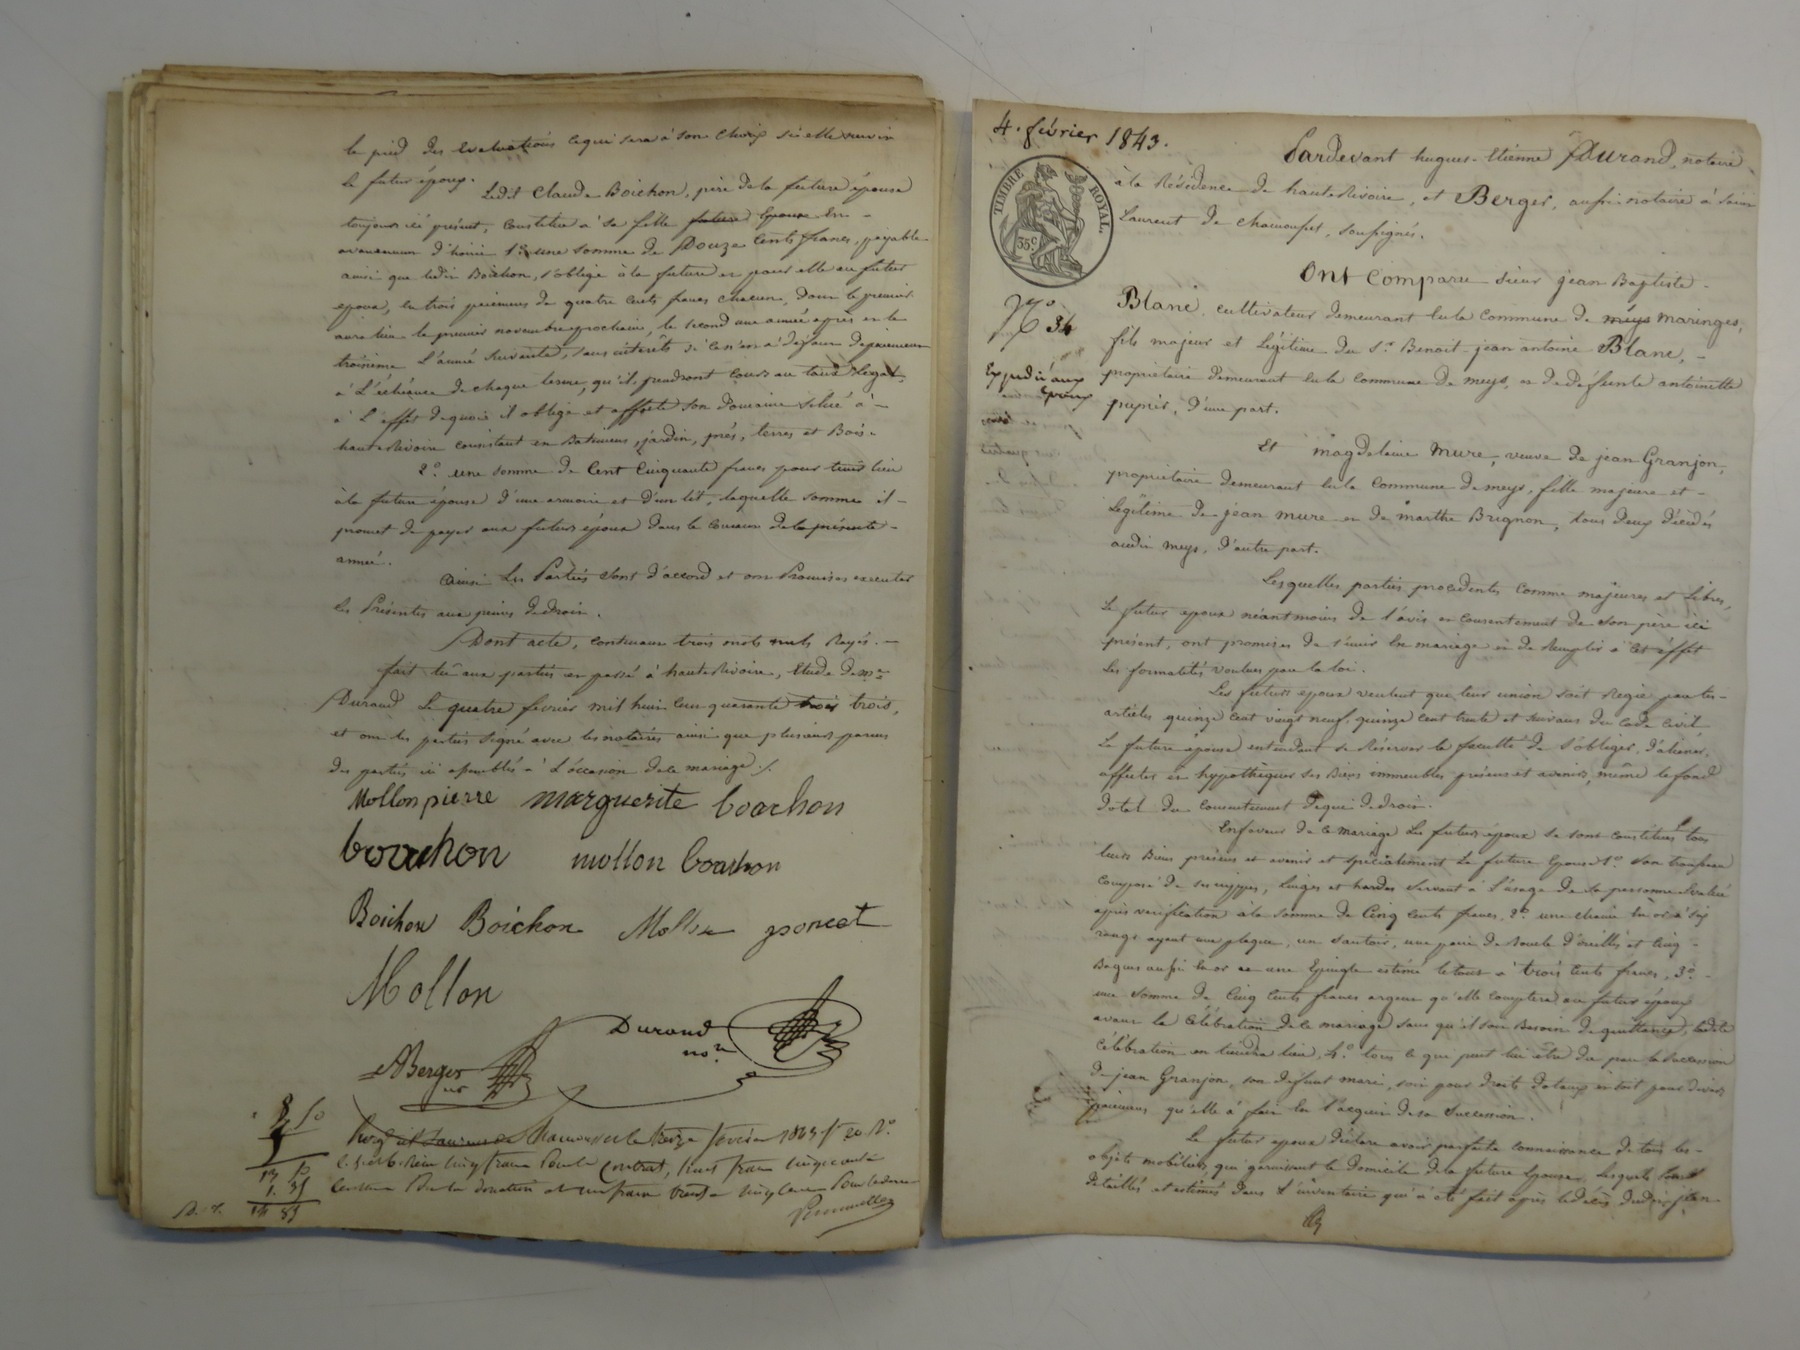 le pied des Evaluations cequi sera à son choix si elle survie
le futur époux.
Ledit Claude Boichon, père de la future épouse
toujours ici présent, constitue à sa fille future Epouse En
avancement d'hoirie 1° une somme de Douze Cents francs, payable
ainsi que ledit Boichon, s'oblige à la future et pour elle au futur
epoux, en trois paiemens de quatre cents francs chacun, dont le premier
aura lieu le premier novembre prochain, le second une année après et le
troisieme L'année suivante, sans intérêts si ce n'en à défaut de paiement
à L'échéance de chaque terme, qu'ils prendront cours au taux légal,
à L'effet de quoi il oblige et affecte son Domaine situé à
haute Rivoire consistant en Batimens, jardin, prés, terres et Bois.
2° une somme de Cent Cinquante francs pour tenir lieu
à la future épouse d'une armoire et d'un lit, laquelle somme il
promet de payer aux futurs époux dans le courant de la présente
année.
Ainsi Les Parties sont d'accord et ont Promis executer
les Présentes aux peines de droit.
Dont acte, contenant trois mots nuls Rayés.
fait lu aux parties et passé à haute Rivoire, Etude de me
Durand Le quatre fevrier mil huit cent quarante trois trois,
et ont les parties signé avec les notaires ainsi que plusieurs parens
des parties ici assemblés à L'occasion de ce mariage ./.
Mollon pierre marguerite boachon
boachon mollon boachon
Boichon Boichon Mollon poncet
Mollon
Durand
nore
ABerger
nre
8 50
5
13 50
1. 35
14 85
4. février 1843.
TIMBRE ROYAL.
35c
No 34
Expédié aux
Epoux
Pardevant hugues-Etienne Durand, notaire
à la Résidence de haute Rivoire, et Berger, aussi notaire à Saint
Laurent de chamousset, soussignés.
Ont Comparu sieur jean Baptiste
Blanc, cultivateur demeurant en la Commune de meys maringes,
fils majeur et Légitime du Sr Benoit-jean antoine Blanc,
propriétaire demeurant en la Commune de meys, et de défunte antoinette
pupier, d'une part.
Et magdelaine Mure, veuve de jean Granjon,
propriétaire demeurant en la Commune de meys, fille majeure et
Légitime de jean Mure et de marthe Brignon, tous deux décédés
audit meys, d'autre part.
Lesquelles parties procédentes comme majeures et Libres,
Le futur epoux néantmoins de l'avis et consentement de son père ici
présent, ont promis de s'unir en mariage et de Remplir à cet éffet
les formalités voulues par la loi.
Les futurs epoux veulent que leur union soit régie par les
articles quinze cent vingt neuf, quinze cent trente et suivans du Code Civil
La future épouse entendant se réserver la faculté de s'obliger, d'aliéner,
affecter et hypothèquer ses Biens immeubles présens et avenir, même le fond
dotal du consentement de qui de droit.
En faveur de ce mariage Les futurs époux se sont constitués tous
leurs Biens présens et avenir et spécialement La future Epouse 1° son trousseau
composé de ses nippes, Linges et hardes servant à l'usage de sa personne Evalué
après verification à la somme de Cinq cents francs, 2° une chaine en or à six
rangs ayant une plaque, un sautoir, une paire de boucle d'oreilles et cinq
Bagues aussi en or et une Epingle estimé le tout à trois Cents francs, 3°
une somme de Cinq Cents francs argent qu'elle comptera au futur époux
avant la Célébration de ce mariage sans qu'il soit Besoin de quittance, ladite
célébration en tiendra lieu, 4° tout ce qui peut lui être du par la succession
de jean Granjon, son défunt mari, soit pour droits dotaux soit pour divers
paiemens qu'elle à fait en l'acquit de sa succession.
Le futur epoux déclare avoir parfaite connaissance de tous les
objets mobiliers qui garnissent le Domicile de la future Epouse, lesquels sont
détaillés et estimés dans L'inventaire qui à été fait après le décès dudit jean